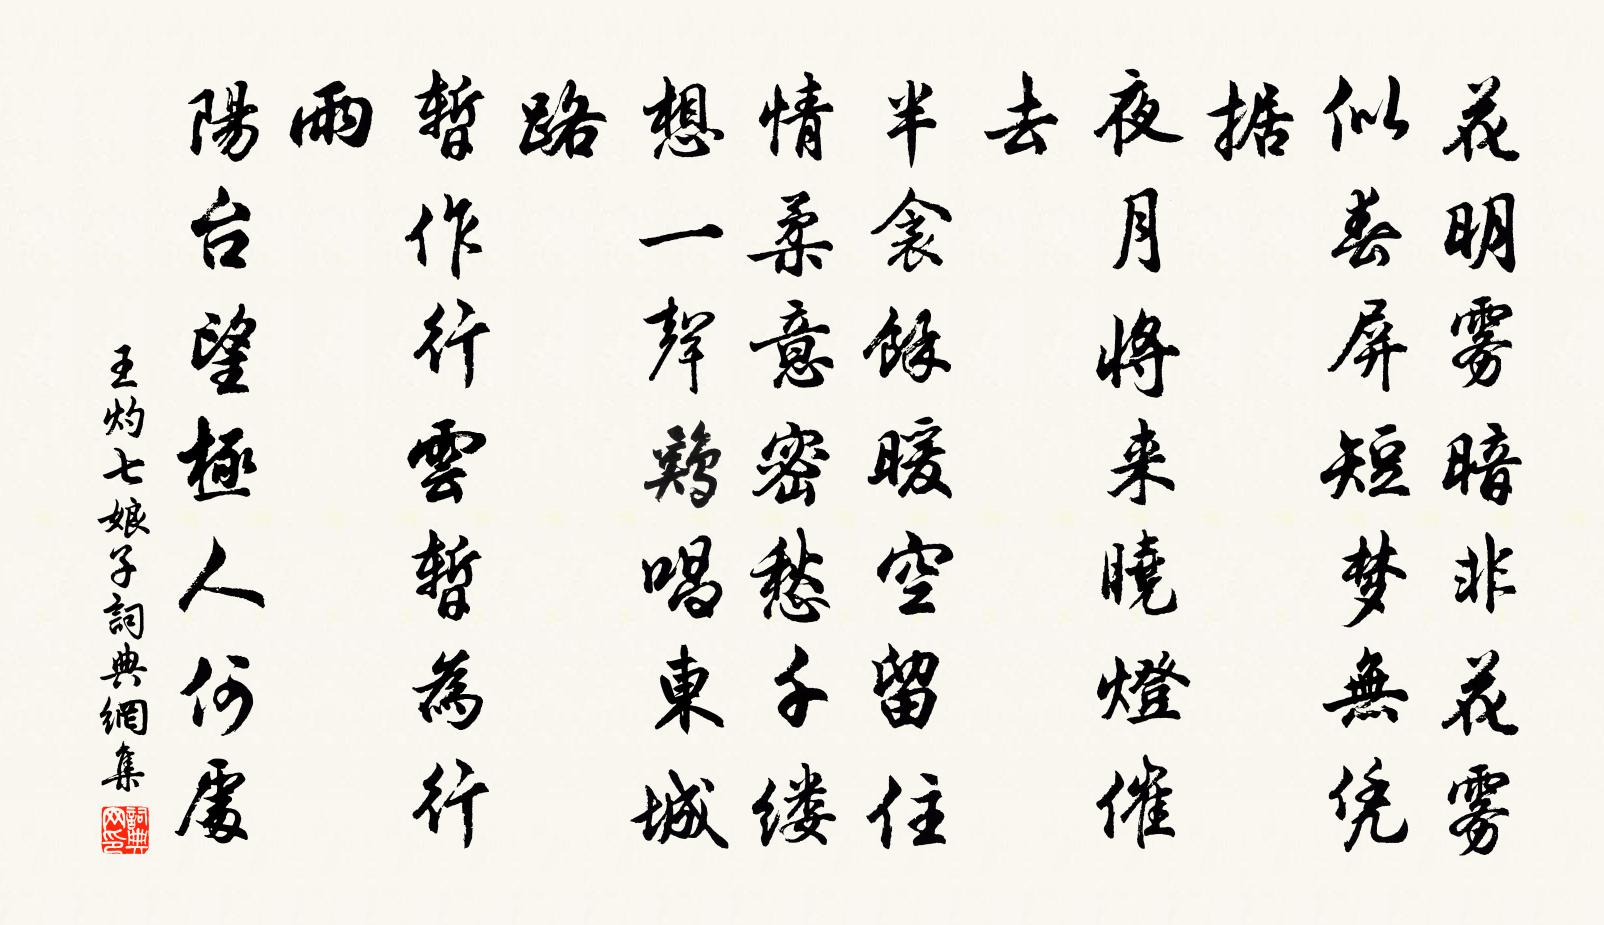 花明雾暗非花雾
似春屏短梦無凭
据
夜月将来曉燈催
去
半衾餘暖空留住
情柔意密愁千缕
想一聲鷄唱東城
路
暫作行雲暫為行
雨
陽台望極人何處
王灼七娘子詞典網集
詞典网印